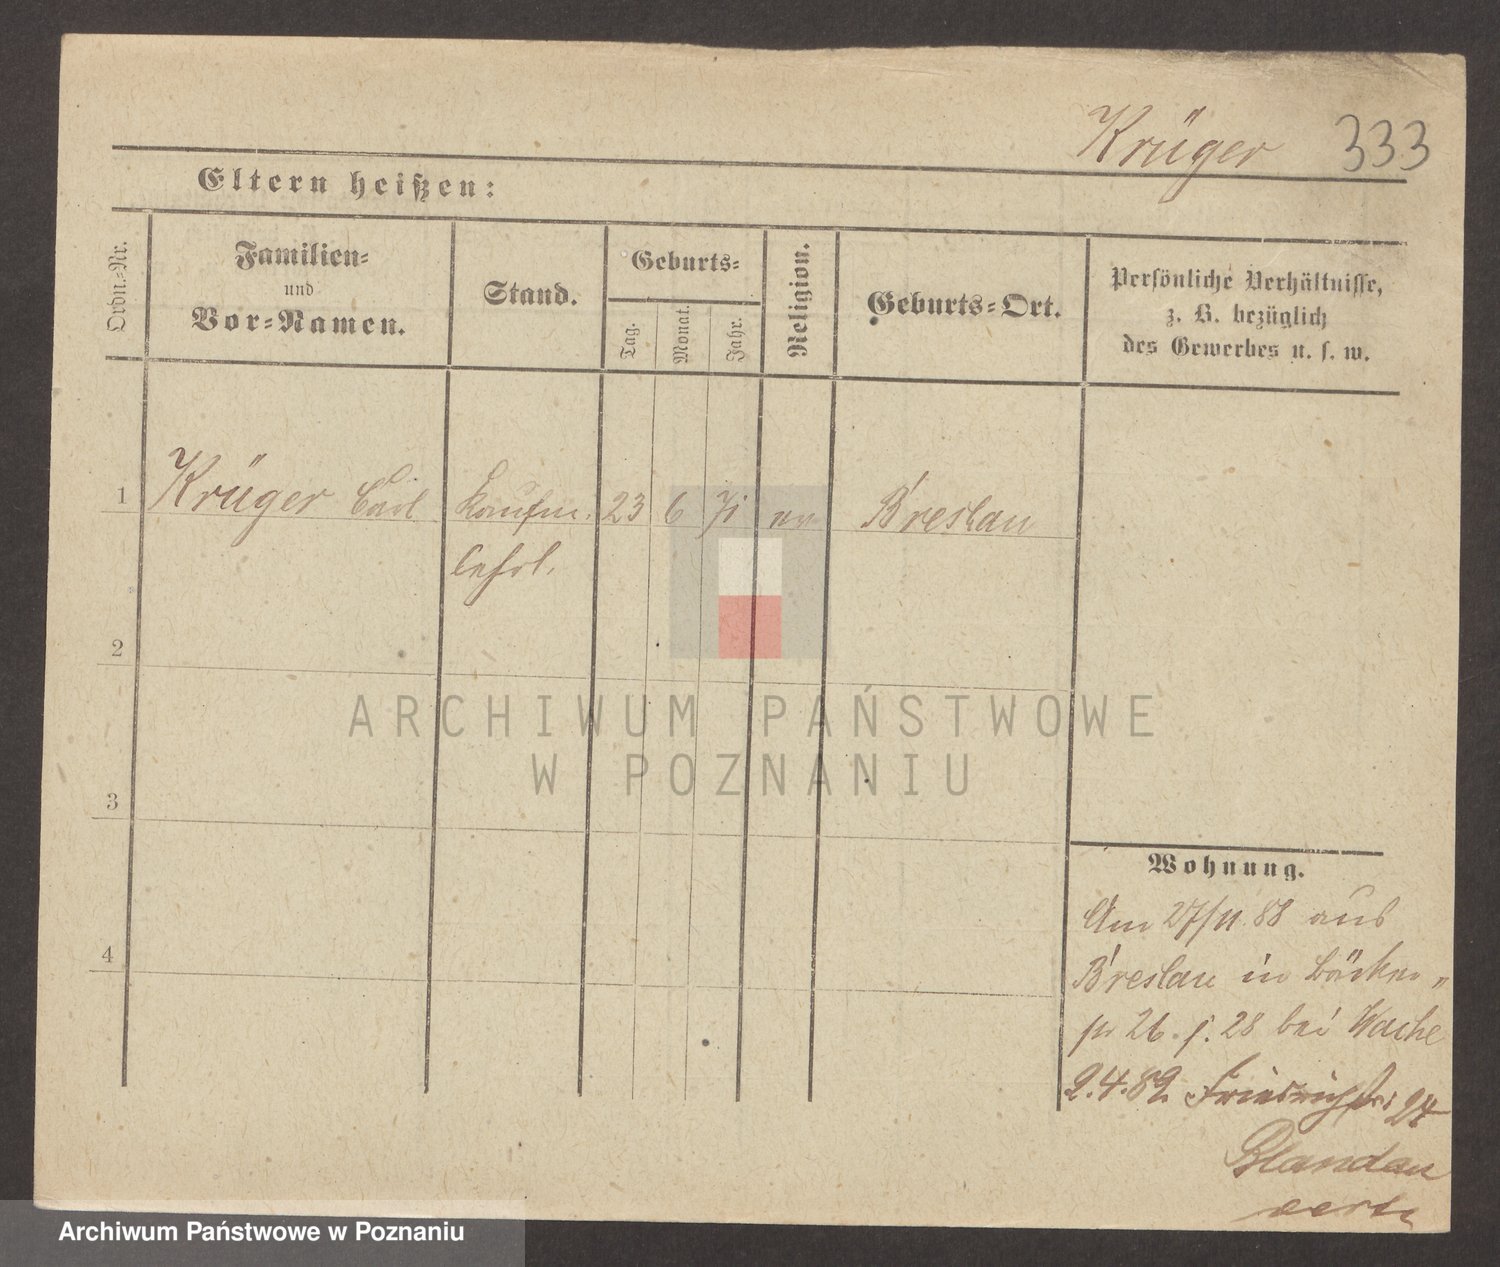 Krüger 333
Eltern heißen:
Ordn.-Nr.
Familien-
und
Vor-Namen.
Stand.
Geburts-
Tag.
Monat.
Jahr.
Religion.
Geburts-Ort.
Persönliche Verhältnisse,
z. B. bezüglich
des Gewerbes u. s. w.
1 Krüger Carl Kaufm. 23 6 71 ev Breslau
lehrl.
2
ARCHIWUM PAŃSTWOWE
W POZNANIU
3
Wohnung.
Am 27/11 88 aus
4
Breslau in Bäcker
26. 28 bei Wache
2.4.89. Friedrichstr 24
Blandau
Archiwum Państwowe w Poznaniu